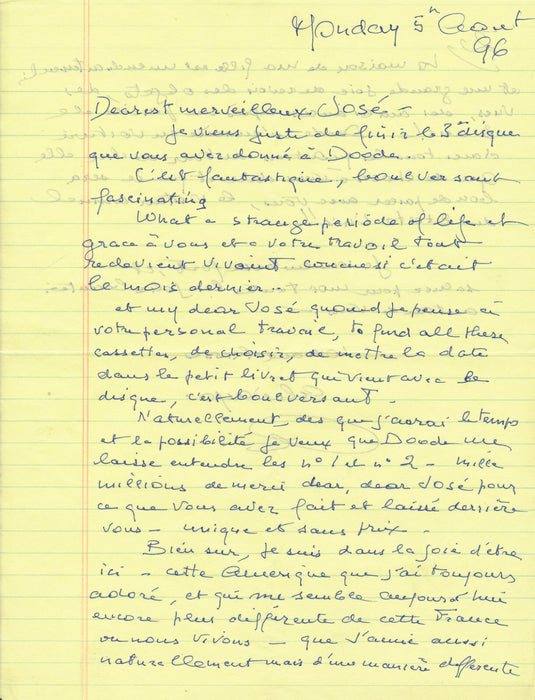 Monday 5th Aout
96
Dearest merveilleux José -
Je viens juste de finir le 3e disque
que vous avez donné à Doode.
C'est fantastique, boulversant
fascinating
What a strange période of life et
grace à vous et a votre travail tout
redevient vivant comme si c'était
le mois dernier -
et my dear José quand je pense à
votre personal travail, to find all these
cassettes, de choisir, de mettre la date
dans le petit livret qui vient avec le
disque, c'est boulversant -
Naturellement, des que j'aurai le temps
et la possibilité je veux que Doode me
laisse entendre les n° 1 et n° 2 - mille
millions de merci dear, dear José pour
ce que vous avez fait et laissé derrière
vous - unique et sans prix -
Bien sur, je suis dans la joie d'être
ici - cette Amerique que j'ai toujours
adoré, et qui me semble aujourd'hui
encore plus différente de cette France
ou nous vivons - que j'aime aussi
naturellement mais d'une manière differente